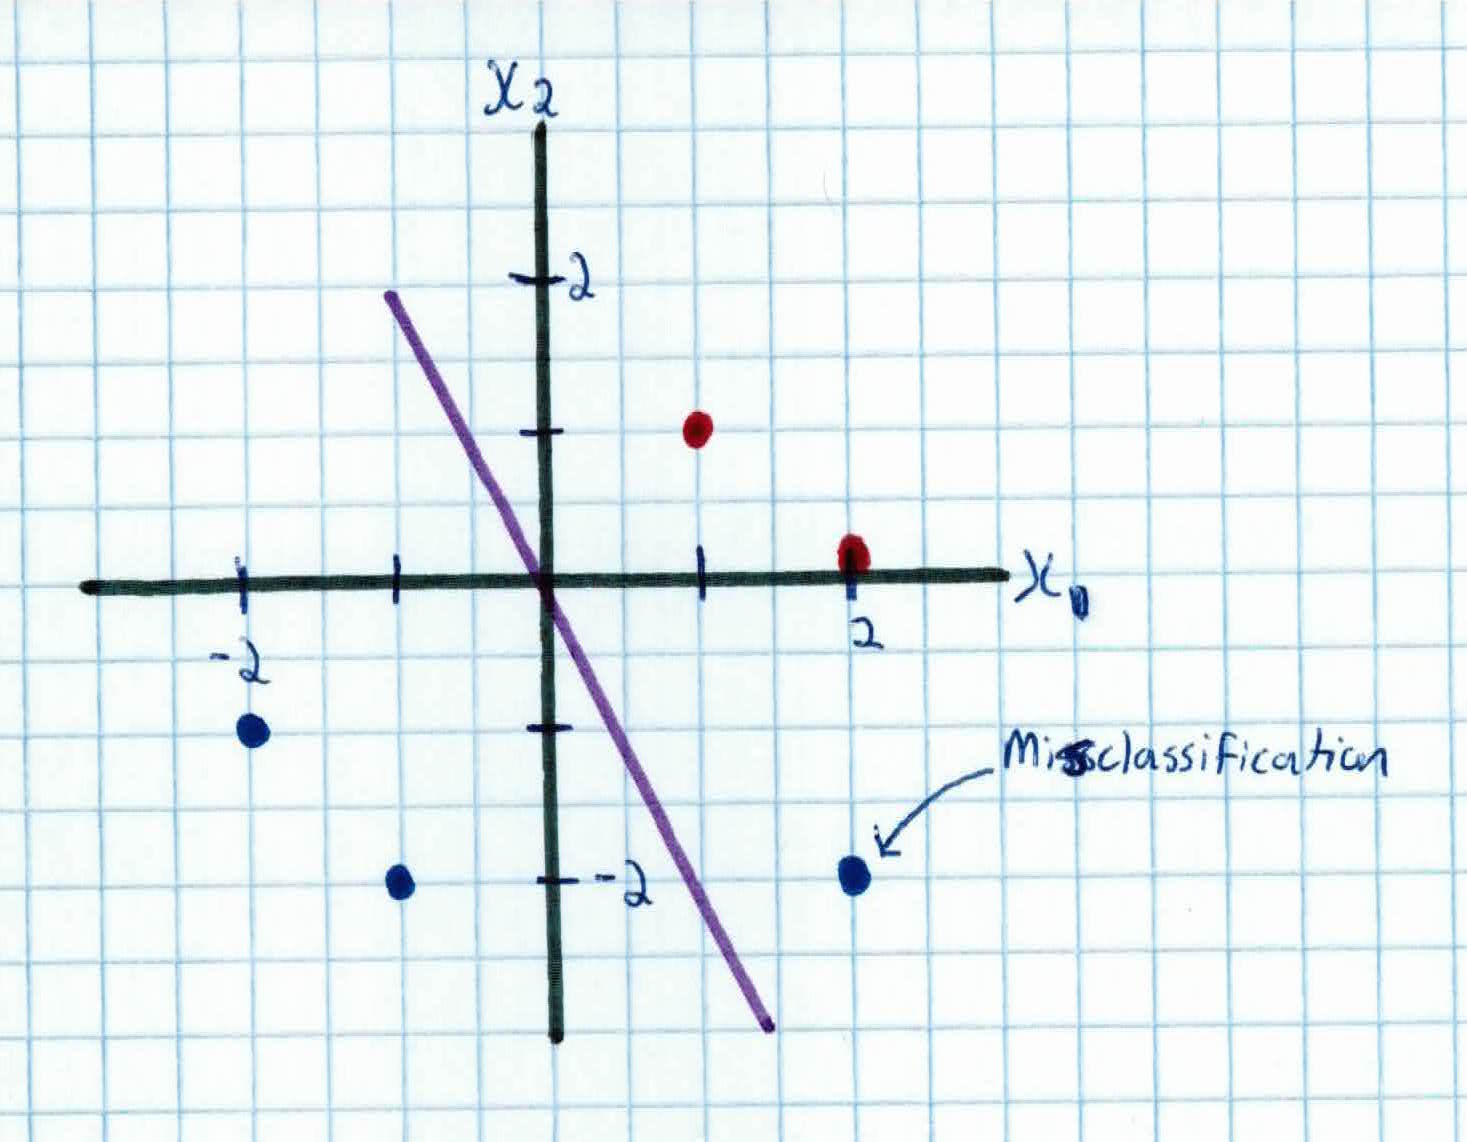 X2
2
X1
-2
2
Misclassification
-2